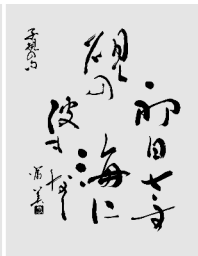 初日さす
硯の
海に
波もなし
子規の句